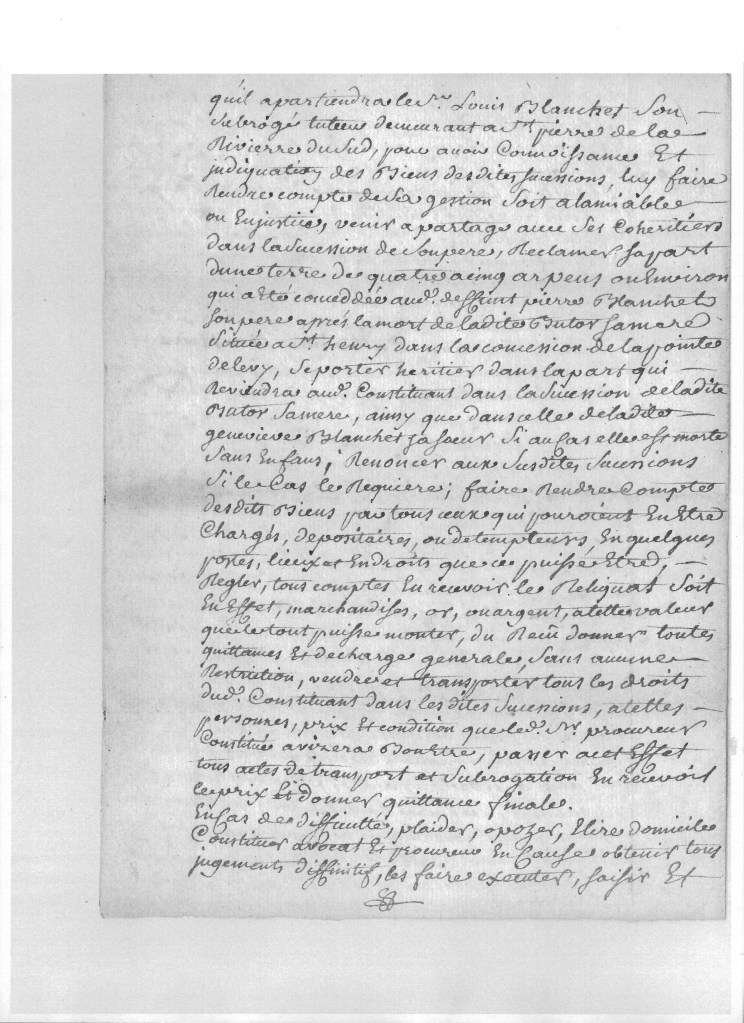 qu'il apartiendra le Sr. Louis Blanchet Son —
Subrogé tuteur demeurant a St. pierre de la
Rivierre du Sud, pour avoir Connoissance Et
indiquation des Biens desdites sucessions, luy faire
Rendre compte de Sa gestion Soit alamiable
ou Enjustice, venir apartage avec Ses Coheritiers
dans la Sucession de Son pere, Reclamer sa part
dune terre de quatre a cinq arpens ou Environ
qui a Eté conceddée aud. deffunt pierre Blanchet
son pere aprés la mort de ladite Butor Samere
Située a St. henry dans la concession de la pointe
de levy, Se porter heritier dans la part qui —
Reviendra aud. Constituant dans la Sucession de ladite
Butor Samere, ainsy que dans celle de ladite —
genevieve Blanchet sa soeur Si au Cas elle est morte
Sans Enfans, Renoncer aux Susdites Sucessions
Si le Cas le Requiere; faire Rendre Compte
desdits Biens par tous ceux qui pouroient En Etre
Chargés, depositaires, ou detempteurs, En quelques
postes, lieux et Endroits que ce puisse Etre, —
Regler, tous comptes En recevoir le Reliquat Soit
En Effet, marchandises, or, ou argent, atelle valeur
que le tout puisse monter, du Recu donner toutes
quittances Et decharge generale, Sans aucune —
Restriction, vendre et transporter tous les droits
dud. Constituant dans lesdites Sucessions, atelles —
personnes, prix Et condition que led. Sr. procureur
Constitué avizera Bon Etre, passer acet Effet
tous actes de transport et Subrogation En recevoir
le prix Et donner quittance finale.
En Cas de difficulté, plaider, opozer, Elire domicile
Constituer avocat Et procureur En Cause obtenir tous
jugements diffinitif, les faire executer, saisir Et